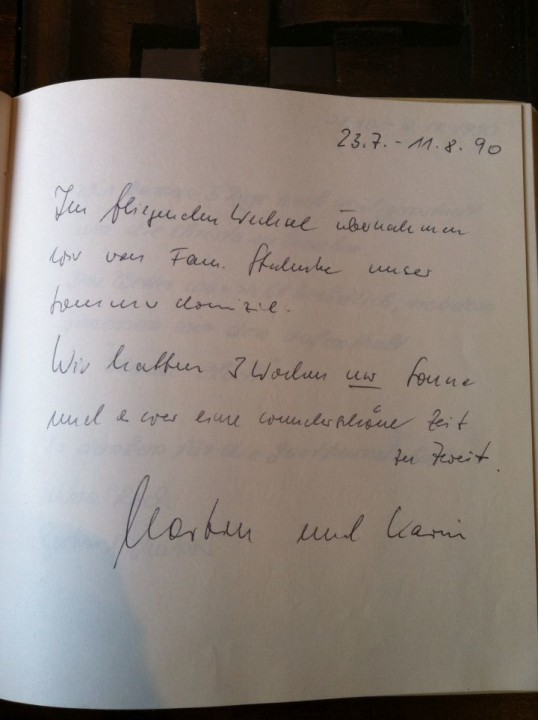 23.7. - 11.8.90
Im fliegenden Wechsel übernahmen
wir von Fam. unser
Sommerdomizil.
Wir hatten 3 Wochen nur Sonne
und es war eine wunderschöne Zeit
zu Zweit.
und Karin